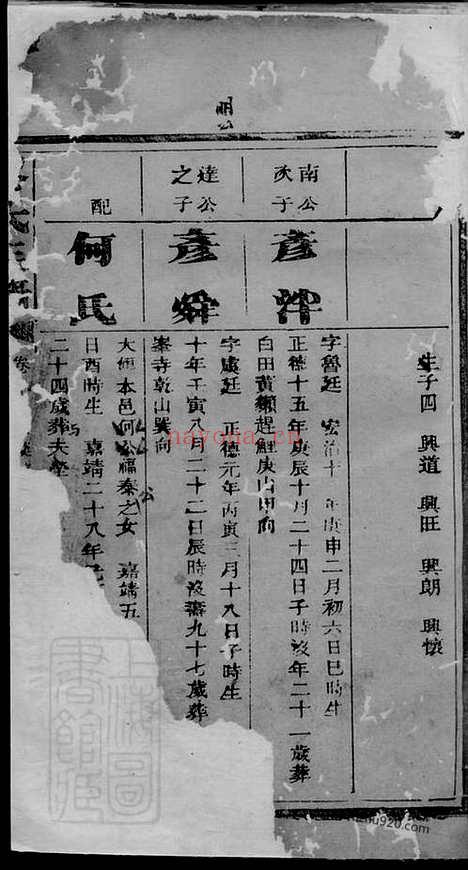 生子四 興道 興旺 興朗 興懷
南公次子
彥
字魯廷 宏治十 年庚申二月初六日巳時生
正德十五年庚辰十月二十四日子時没年二十一歲葬
白田黃獺趕鯉庚山甲向
達公之子
彥舜
字虞廷 正德元年丙寅三月十八日子時生
十年壬寅八月二十二日辰時没壽九十七歲葬
寺乾山巽向
配
何氏
大 本邑何公福秦之女 嘉靖五
日酉時生 嘉靖二十八年
二十四歲葬夫塋
nayona.cn
zhuona920.com